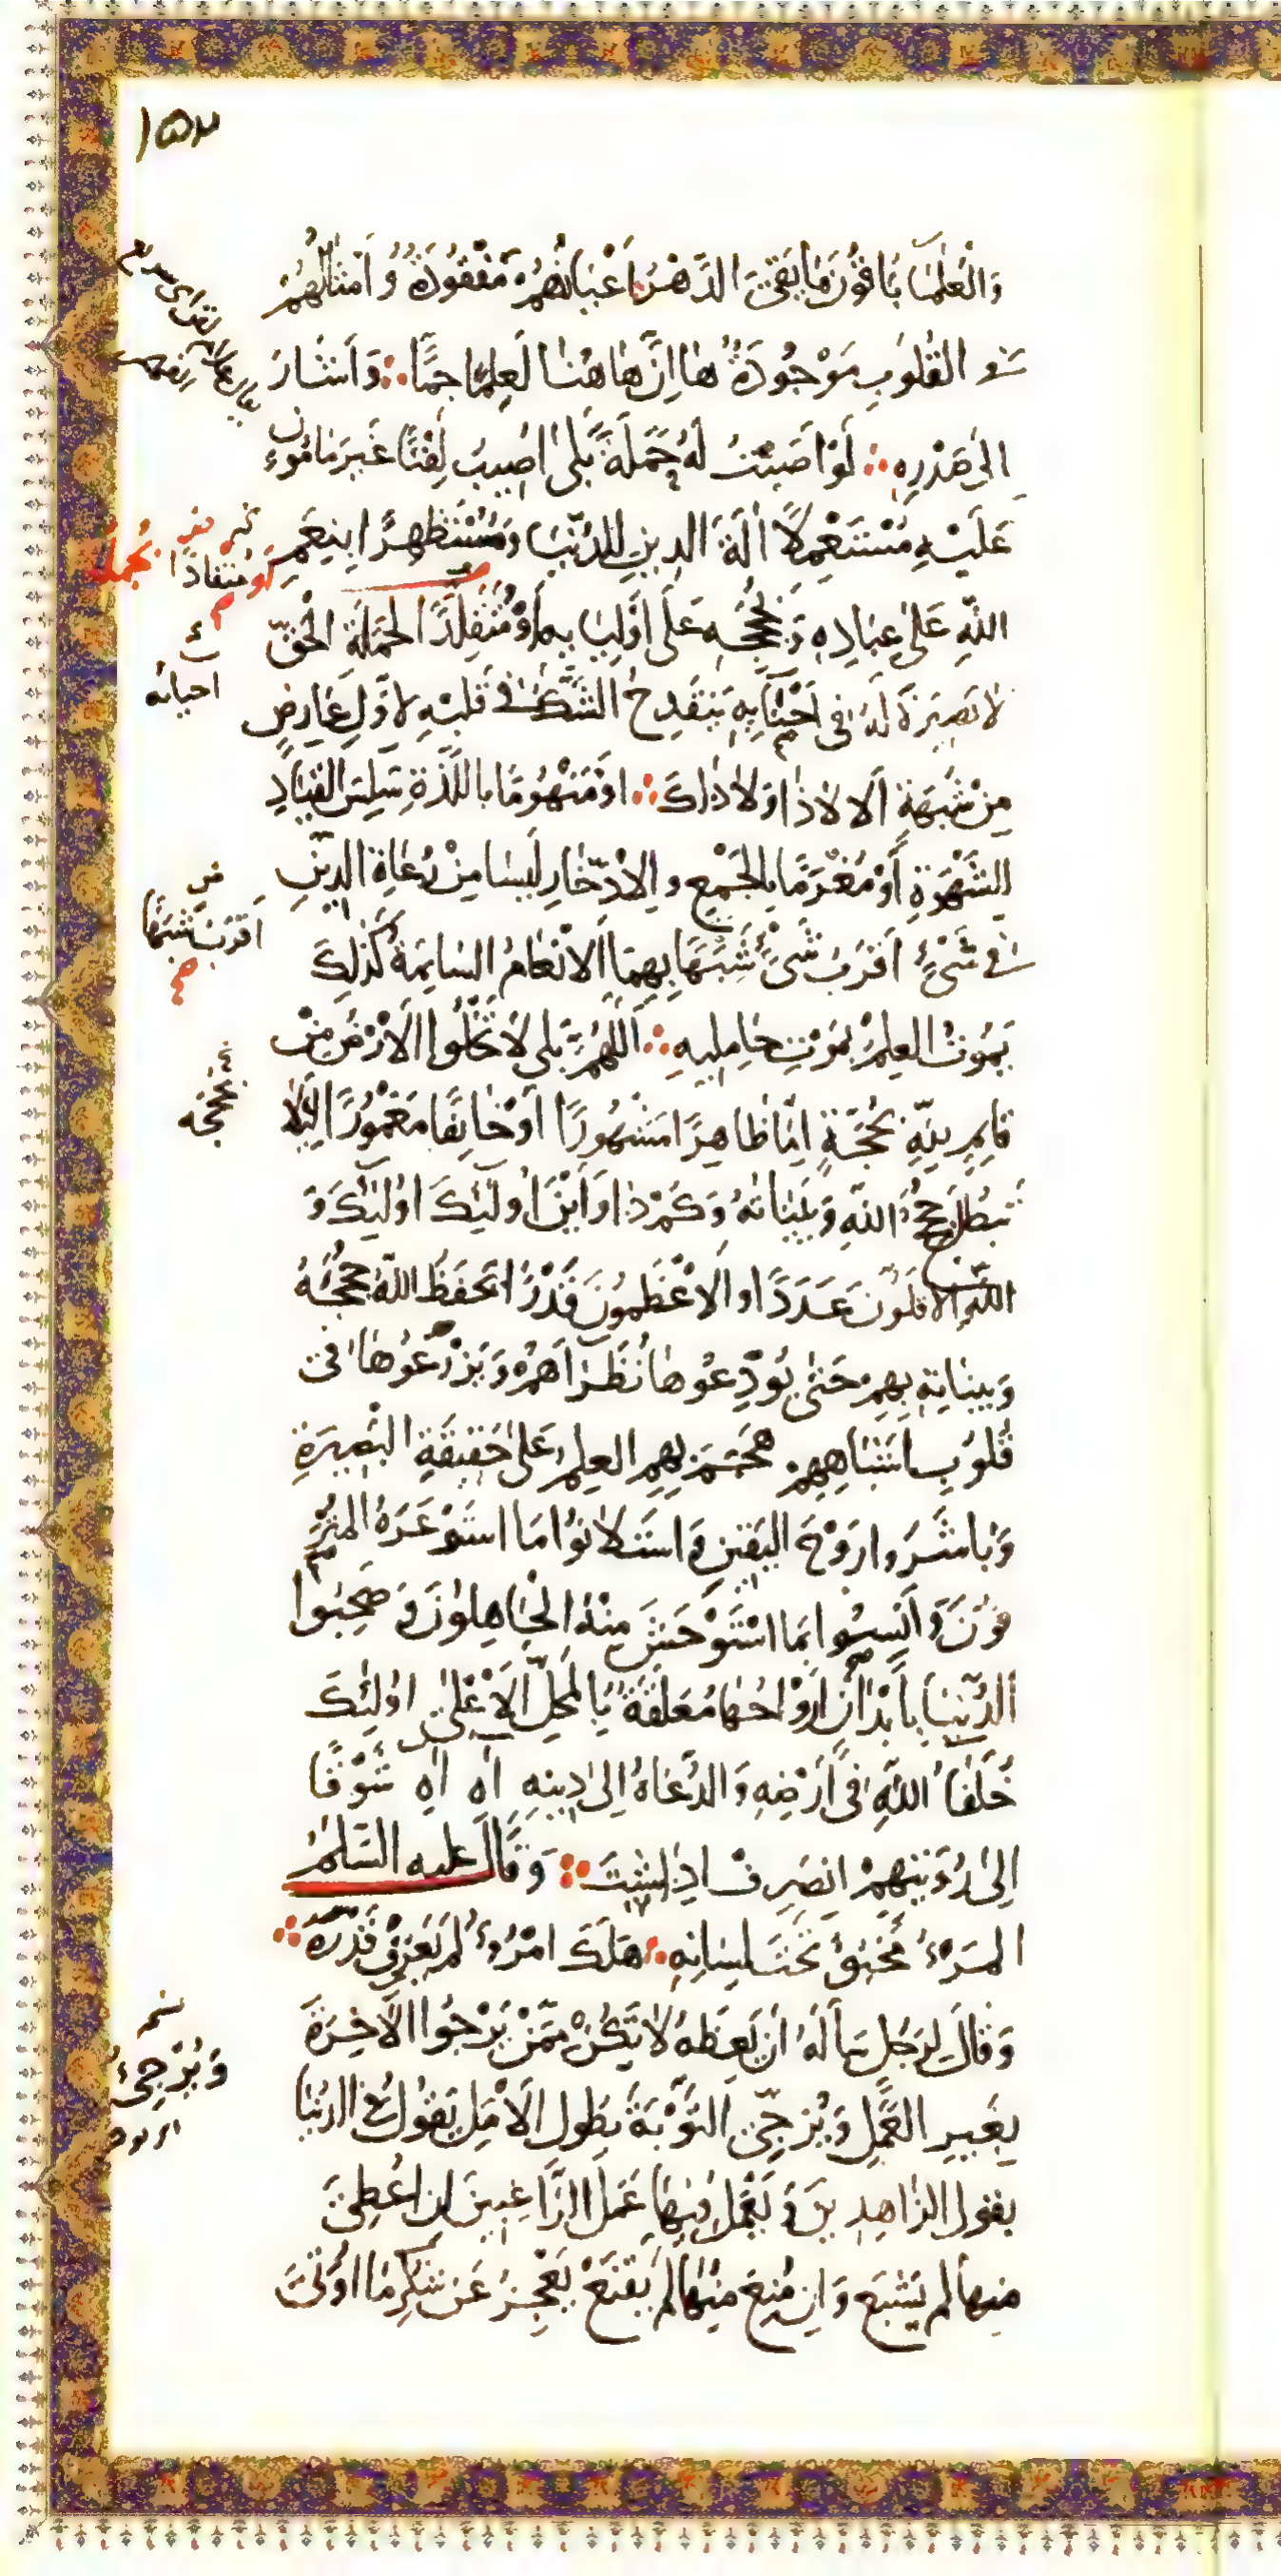 ١٥٣
وَالْعُلَمَآءُ بَاقُونَ مَا بَقِيَ الدَّهْرُ اَعْيَانُهُمْ مَفْقُودَةٌ وَ اَمْثَالُهُمْ
فِى القُلُوبِ مَوْجُودَةٌ هَا اِنَّ هَاهُنَا لَعِلْمًا جَمًّا وَ اَشَارَ
اِلَى صَدْرِهِ لَوْ اَصَبْتُ لَهُ حَمَلَةً بَلَى اُصِيبُ لَقِنًا غَيْرَ مَامُونٍ
عَلَيْهِ مُسْتَعْمِلًا اٰلَةَ الدِينِ لِلدُّنْيَا وَمُسْتَظْهِرًا بِنِعَمِ
اللّٰهِ عَلَى عِبَادِهِ وَ بِحُجَجِهِ عَلَى اَوْلِيَائِهِ اَوْ مُنْقَلِدًا لِحَمَلَةِ الْحَقِّ
لَا بَصِيرَةَ لَهُ فِى اَحْنَائِهِ يَنْقَدِحُ الشَّكُّ فِى قَلْبِهِ لِاَوَّلِ عَارِضٍ
مِنْ شُبْهَةٍ اَلَا لَا ذَا وَ لَا ذَاكَ اَوْ مَنْهُومًا بِاللَّذَّةِ سَلِسَ القِيَادِ
لِلشَّهْوَةِ اَوْ مُغْرَمًا بِالجَمْعِ و الِادِّخَارِ لَيْسَا مِنْ رُعَاةِ الدِّينِ
فِى شَىْءٍ اَقْرَبُ شَىْءٍ شَبَهًا بِهِمَا اَلْاَنْعَامُ السَائِمَةُ كَذٰلِكَ
يَمُوتُ العِلْمُ بِمَوْتِ حَامِلِيهِ اَللّٰهُمَّ بَلَى لَا تَخْلُوا الْاَرْضُ مِنْ
قَائِمٍ لِلّهِ بِحُجَّةٍ اِمَّا ظَاهِرًا مَشْهُورًا اَوْ خَائِفًا مَغْمُورًا لِئَلَّا
تَبْطُلَ حُجَجُ اللّهِ وَ بَيِّنَاتُهُ وَ كَمْ ذَا وَ اَيْنَ اُولٰئِكَ اُولٰئِكَ وَ
اللّهِ الْاَقَلُّونَ عَدَدًا و الْاَعْظَمُونَ قَدْرًا يَحْفَظُ اللّهُ حُجَجَهُ
وَ بَيِّنَاتِهِ بِهِمْ حَتّٰى يُوَدِّعُوهَا نُظَرَآءَهُمْ وَ يَزْرَعُوهَا فِى
قُلُوبِ اَشْبَاهِهِمْ هَجَمَ بِهِمِ العِلْمُ عَلَى حَقِيقَةِ البَصِيرَةِ
وَ بَاشَرُوا رَوْحَ اليَقِينِ وَ اسْتَلَانُوا مَا اسْتَوْعَرَهُ المُتْرَ
فُونَ وَ اَنِسُوا بِمَا اسْتَوْحَشَ مِنْهُ الْجَاهِلُونَ وَ صَحِبُوا
الدُّنْيَا بِاَبْدَانٍ اَرْوَاحُهَا مُعَلَّقَةٌ بِالمَحَلِّ الْاَعْلَى اُولٰئِكَ
خُلَفَآءُ اللّهِ فِى اَرْضِهِ وَ الدُّعَاةُ اِلَى دِينِهِ اٰهِ اٰهِ شَوْقًا
اِلَى رُؤْيَتِهِمْ انْصَرِفْ اِذَا شِئْتَ وَ قَالَ عليه السَّلَمُ
المَرْءُ مَخْبُوٌّ تَحْتَ لِسَانِهِ هَلَكَ امْرُءٌ لَمْ يَعْرِفْ قَدْرَهُ
وَ قَالَ لِرَجُلٍ سَاَلَهُ اَنْ يَعِظَهُ لَا تَكُنْ مِمَّنْ يَرْجُوا الْاٰخِرَةَ
بِغَيرِ العَمَلِ وَ يُرَجِّى التَّوْبَةَ بِطُولِ الْاَمَلِ يَقُولُ فِى الدُنْيَا
بِقَولِ الزَاهِدِينَ وَ يَعْمَلُ فِيهَا عَمَلَ الرَّاغِبِينَ اِنْ اُعْطِىَ
مِنهَا لَمْ يَشْبَعْ وَ اِنْ مُنِعَ مِنْهَا لَمْ يَقْنَعْ يَعْجِزُ عَنْ شُكْرِ مَا اُوتِىَ
مُنْقَادًا
احيائه
اَقْرَبُ شَبَهًا
بِحُجَّة
وَ يُرْجِئُ